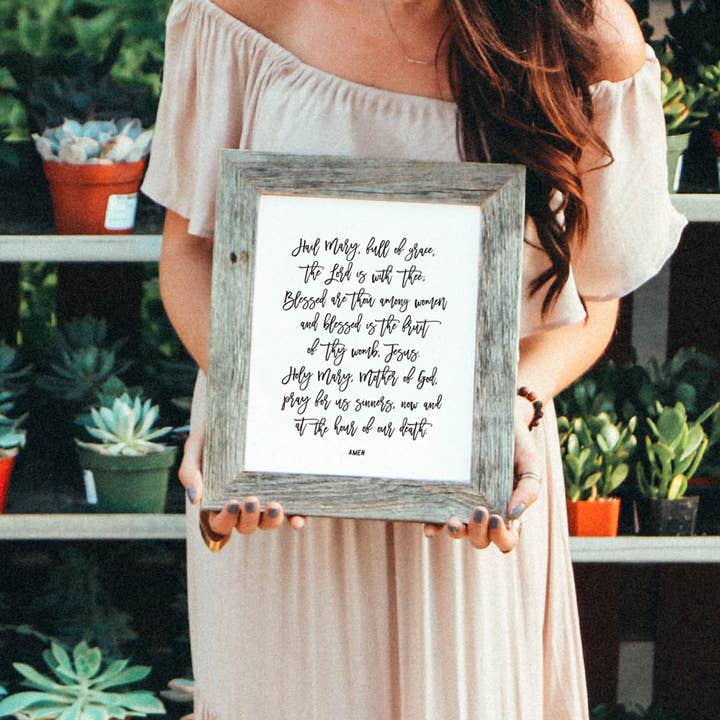 Hail Mary, full of grace,
the Lord is with thee.
Blessed are thou among women
and blessed is the fruit
of thy womb, Jesus.
Holy Mary, Mother of God,
pray for us sinners, now and
at the hour of our death.
AMEN